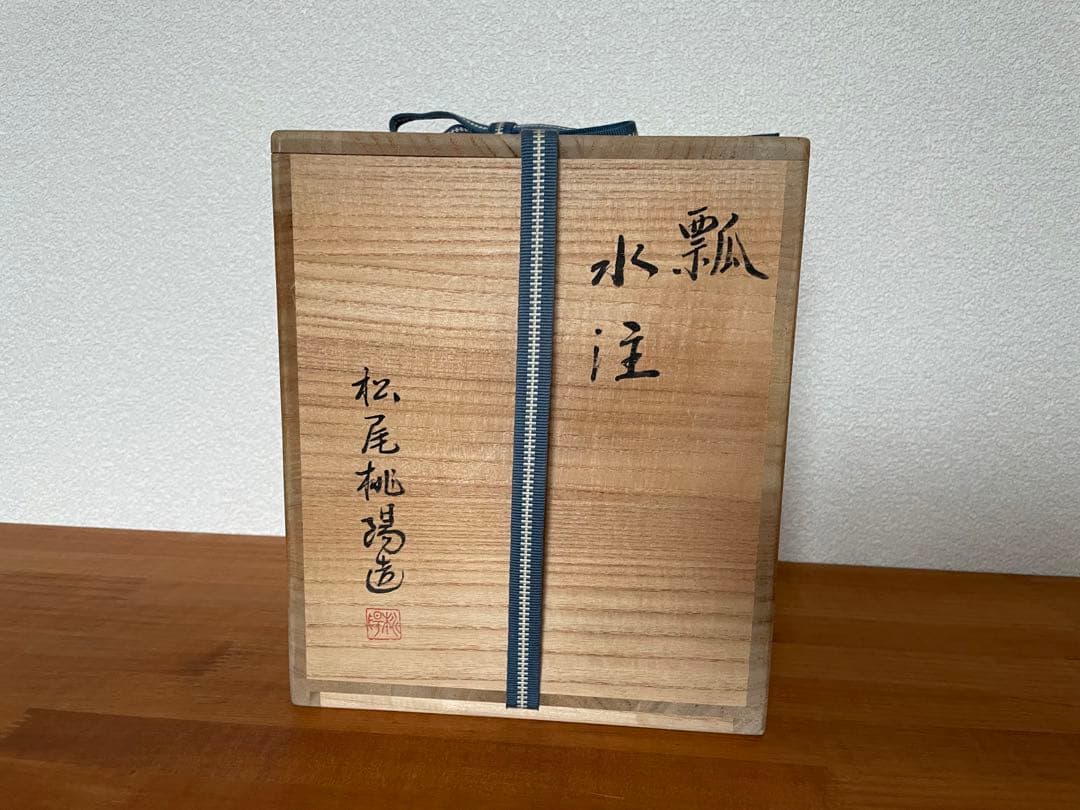 瓢
水注
松尾桃陽造